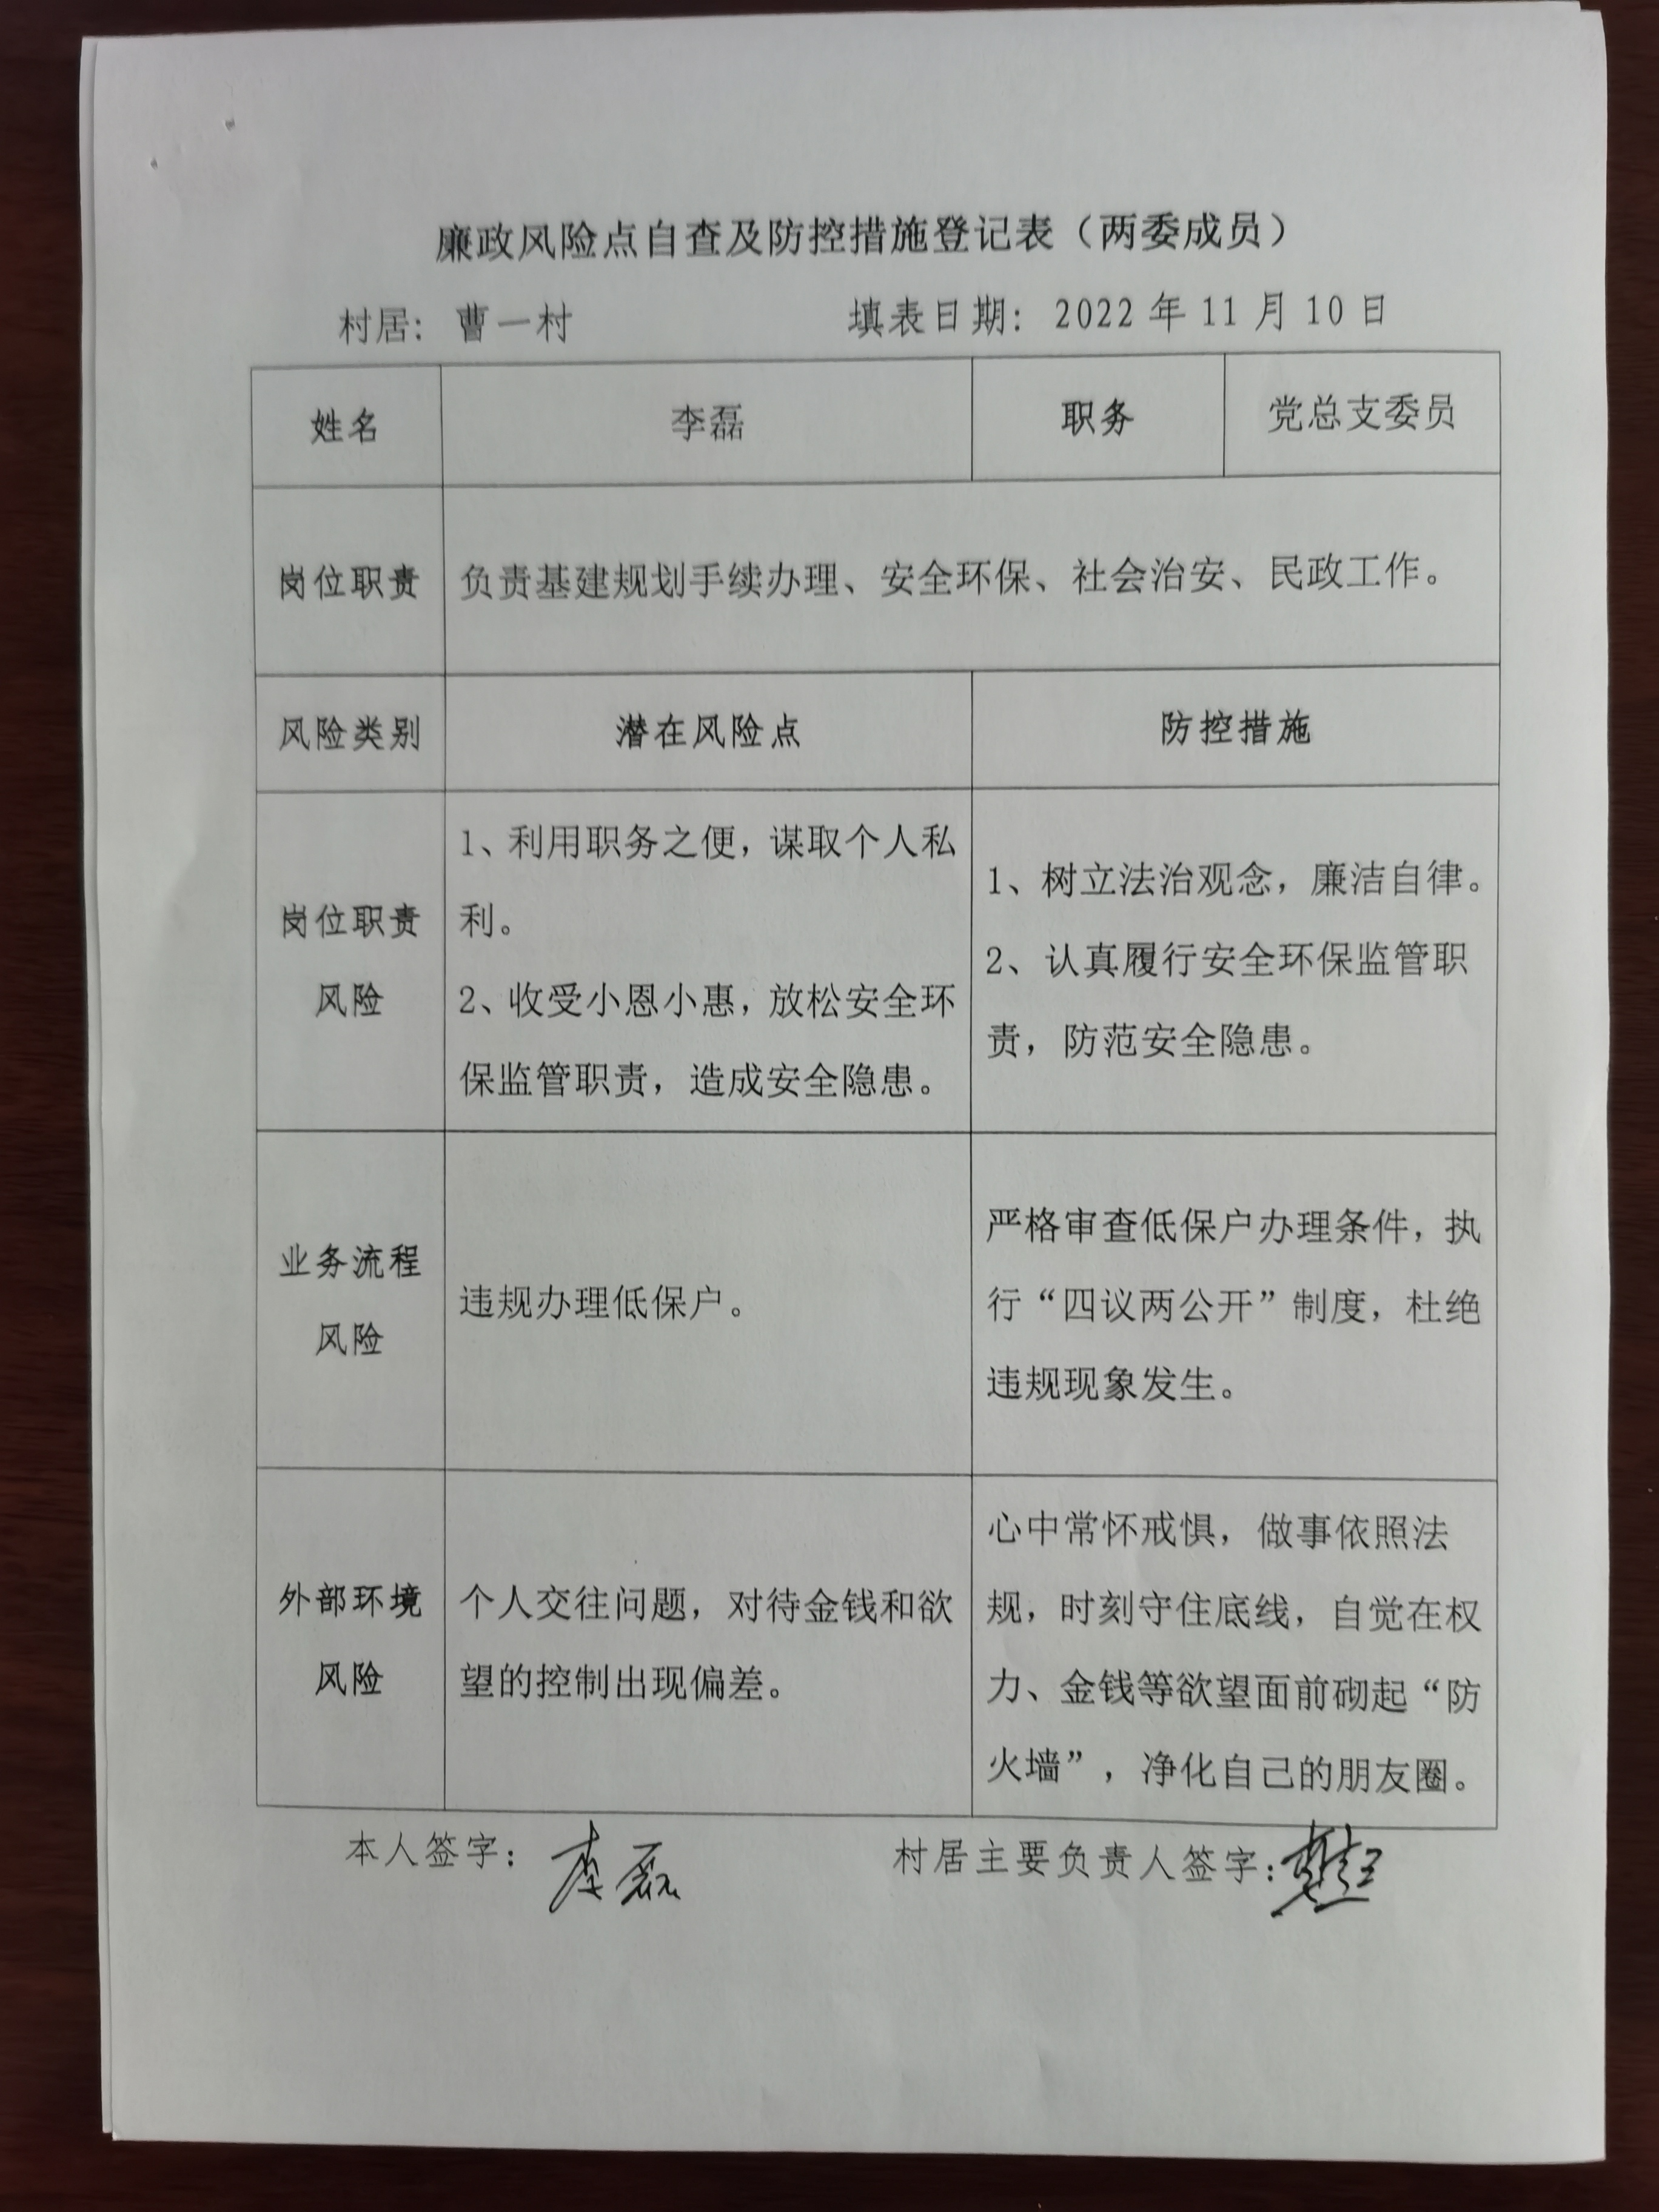 廉政风险点自查及防控措施登记表（两委成员）
村居：曹一村 填表日期：2022年11月10日
姓名 李磊 职务 党总支委员
岗位职责 负责基建规划手续办理、安全环保、社会治安、民政工作。
风险类别 潜在风险点 防控措施
岗位职责
风险
1、利用职务之便，谋取个人私
利。
2、收受小恩小惠，放松安全环
保监管职责，造成安全隐患。
1、树立法治观念，廉洁自律。
2、认真履行安全环保监管职
责，防范安全隐患。
业务流程
风险
违规办理低保户。
严格审查低保户办理条件，执
行“四议两公开”制度，杜绝
违规现象发生。
外部环境
风险
个人交往问题，对待金钱和欲
望的控制出现偏差。
心中常怀戒惧，做事依照法
规，时刻守住底线，自觉在权
力、金钱等欲望面前砌起“防
火墙”，净化自己的朋友圈。
本人签字：李磊 村居主要负责人签字：